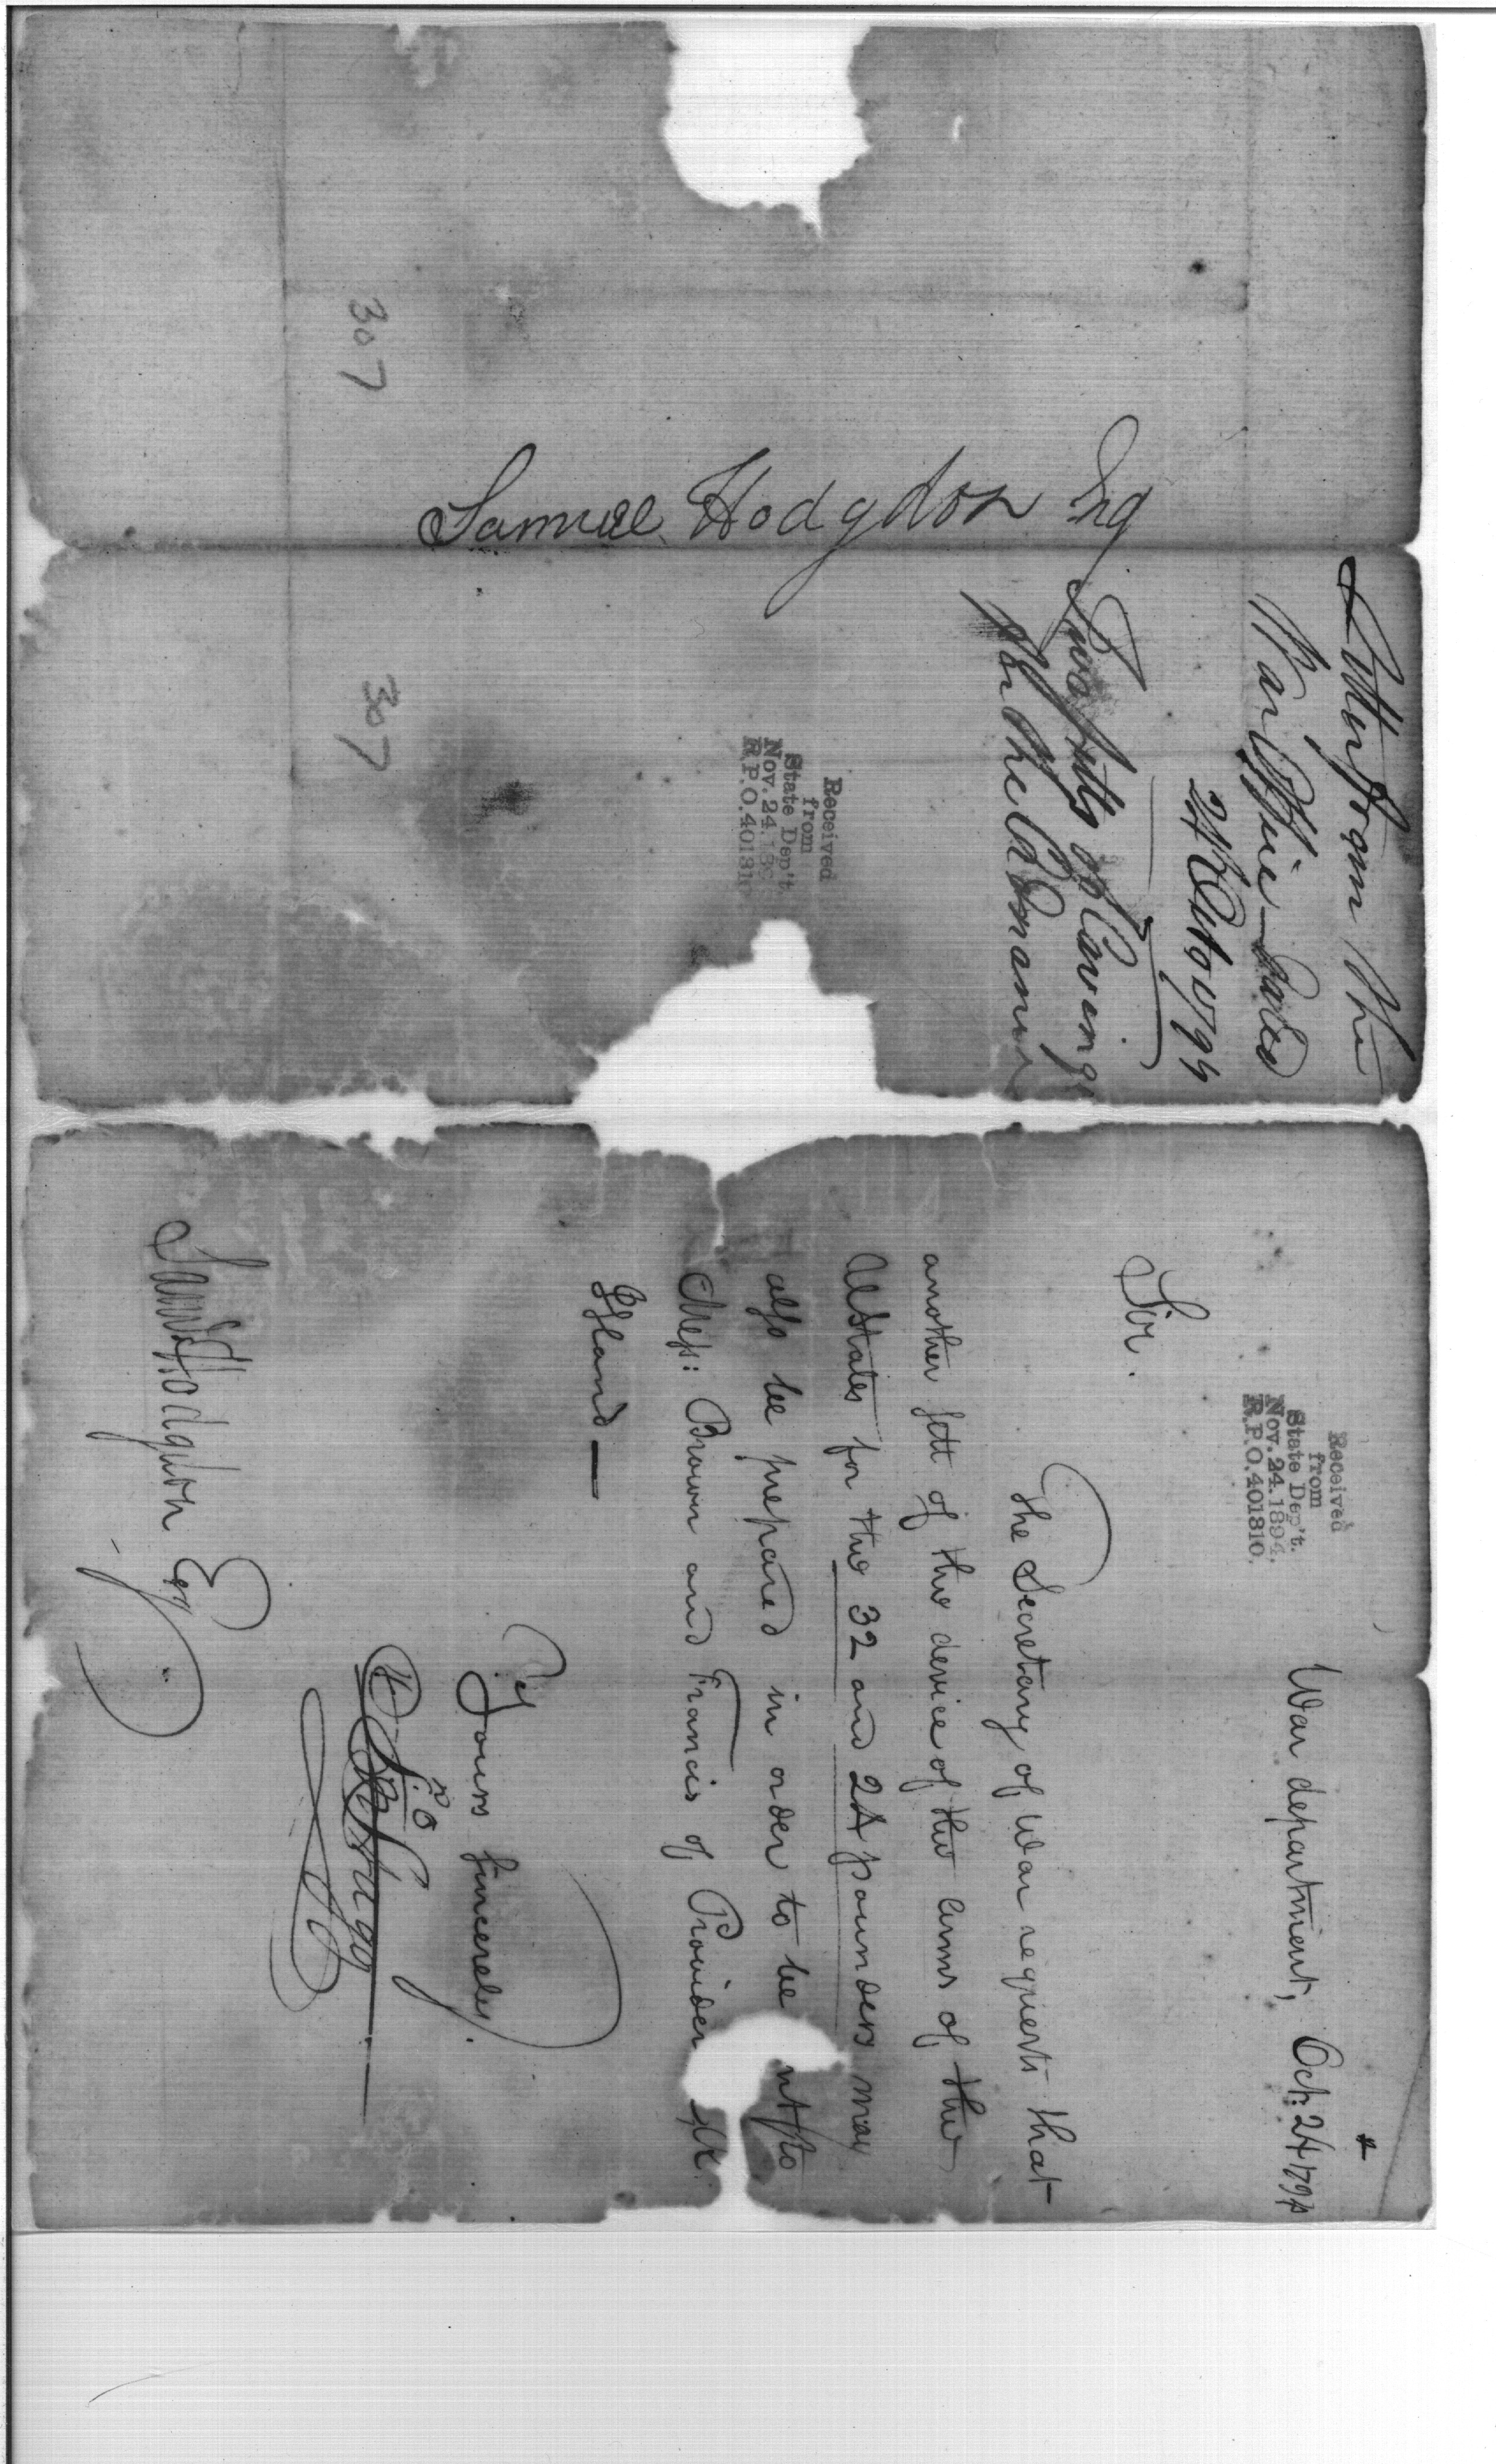 Samuel Hodgdon Esq
307
Letter from the
War Office dated
24 Octo 1794
Two setts of Carving
for the Cannon
Received
from
State Dep't
Nov. 24. 189
R.P.O. 401310
307
Received
from
State Dep't.
Nov. 24. 1894.
R.P.O. 401310.
War department, Oct: 24 1794
Sir.
The Secretary of War requests that
another sett of the device of the arms of the
UStates for the 32 and 24 pounders may
also be prepared in order to be nt to
Mess: Brown and Francis of Providen
Island —
Yours sincerely.
Jno Stagg Jr
Saml Hodgdon Esq